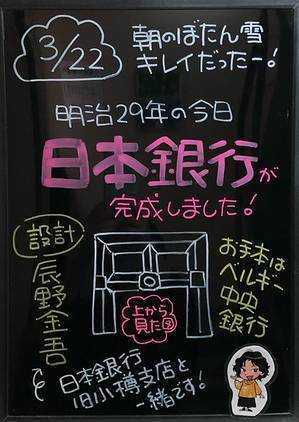 3/22
朝のぼたん雪
キレイだったー!
明治29年の今日
日本銀行が
完成しました!
設計
辰野金吾
上から
見た図
お手本は
ベルギー
中央
銀行
日本銀行
旧小樽支店と
一緒です!